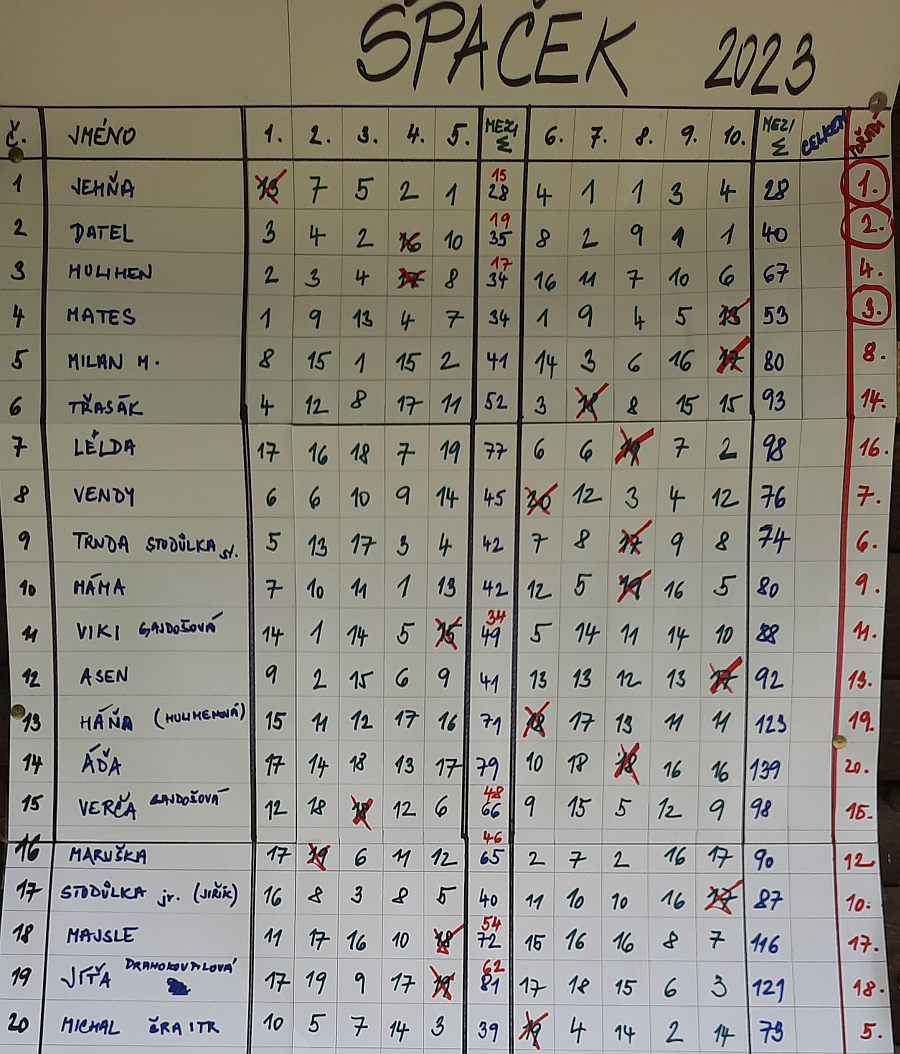 ŠPAČEK 2023
Č. JMÉNO 1. 2. 3. 4. 5. MEZI Σ 6. 7. 8. 9. 10. MEZI Σ CELKEM POŘADÍ
1 JEHŇA 13 7 5 2 1 15 28 4 1 1 3 4 28 1.
2 DATEL 3 4 2 16 10 19 35 8 2 9 1 1 40 2.
3 HULIMEN 2 3 4 17 8 17 34 16 11 7 10 6 67 4.
4 MATES 1 9 13 4 7 34 1 9 4 5 13 53 3.
5 MILAN M. 8 15 1 15 2 41 14 3 6 16 17 80 8.
6 TŘASÁK 4 12 8 17 11 52 3 18 8 15 15 93 14.
7 LÉLDA 17 16 18 7 19 77 6 6 19 7 2 98 16.
8 VENDY 6 6 10 9 14 45 20 12 3 4 12 76 7.
9 TRNDA STODŮLKA st. 5 13 17 3 4 42 7 8 17 9 8 74 6.
10 MÁMA 7 10 11 1 13 42 12 5 19 16 5 80 9.
11 VIKI GAJDOŠOVÁ 14 1 14 5 15 34 49 5 14 11 14 10 88 11.
12 ASEN 9 2 15 6 9 41 13 13 12 13 17 92 13.
13 HÁŇA (HULIMENOVÁ) 15 11 12 17 16 71 18 17 13 11 11 123 19.
14 ÁĎA 17 14 18 13 17 79 10 18 18 16 16 139 20.
15 VERČA GAJDOŠOVÁ 12 18 18 12 6 48 66 9 15 5 12 9 98 15.
16 MARUŠKA 17 19 6 11 12 46 65 2 7 2 16 17 90 12.
17 STODŮLKA jr. (JIŘÍK) 16 8 3 8 5 40 11 10 10 16 17 87 10.
18 MAJSLE 11 17 16 10 18 54 72 15 16 16 8 7 116 17.
19 JÍŤA 17 19 9 17 19 62 81 17 18 15 6 3 121 18.
20 MICHAL 10 5 7 14 3 39 19 4 14 2 14 73 5.